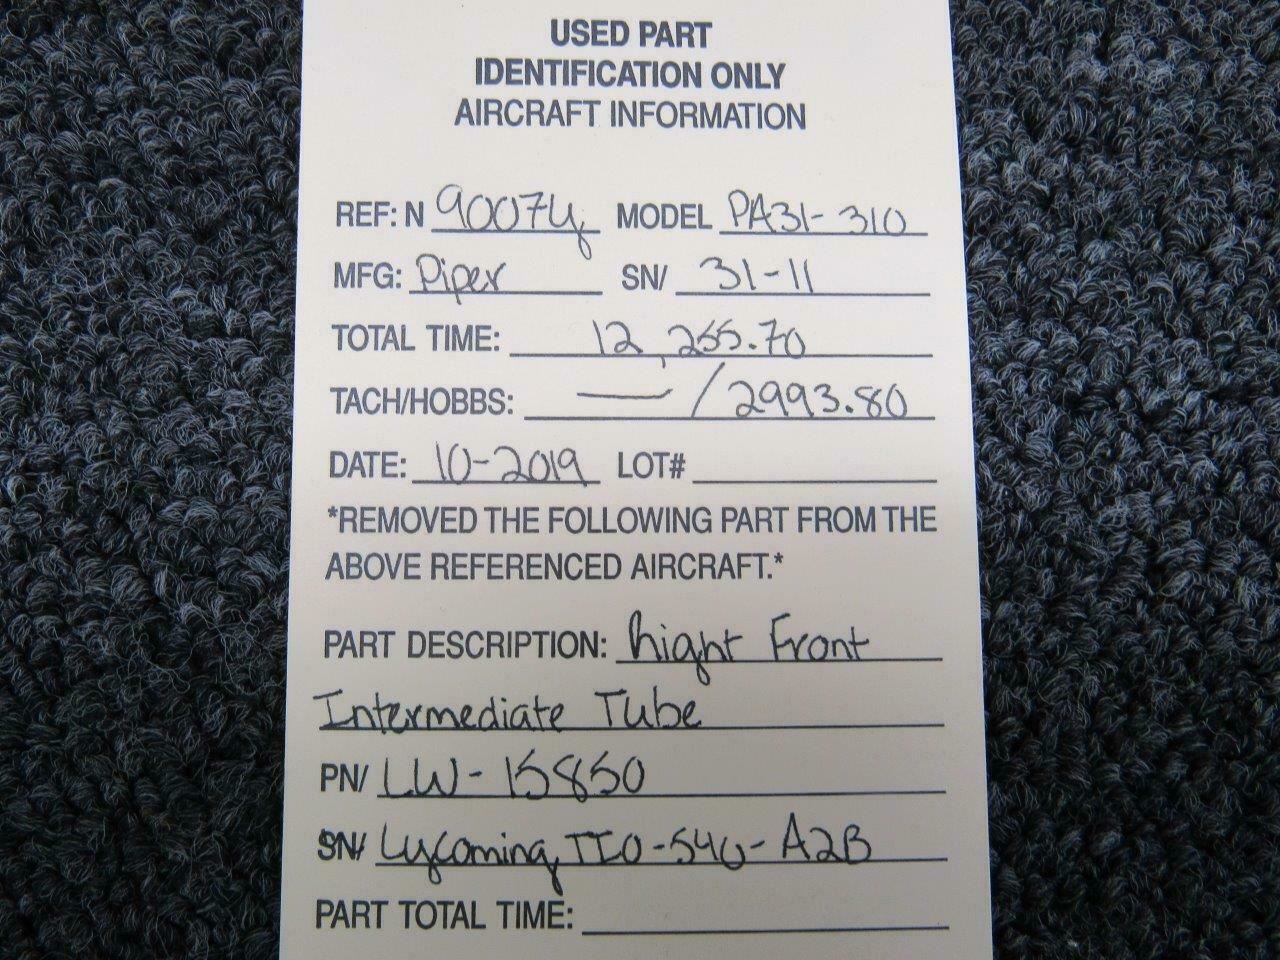 USED PART
IDENTIFICATION ONLY
AIRCRAFT INFORMATION
REF: N 9007Y MODEL PA31-310
MFG: Piper SN/ 31-11
TOTAL TIME: 12,255.70
TACH/HOBBS: — / 2993.80
DATE: 10-2019 LOT#
*REMOVED THE FOLLOWING PART FROM THE
ABOVE REFERENCED AIRCRAFT.*
PART DESCRIPTION: Right Front
Intermediate Tube
PN/ LW-15850
SN/ Lycoming TIO-540-A2B
PART TOTAL TIME: